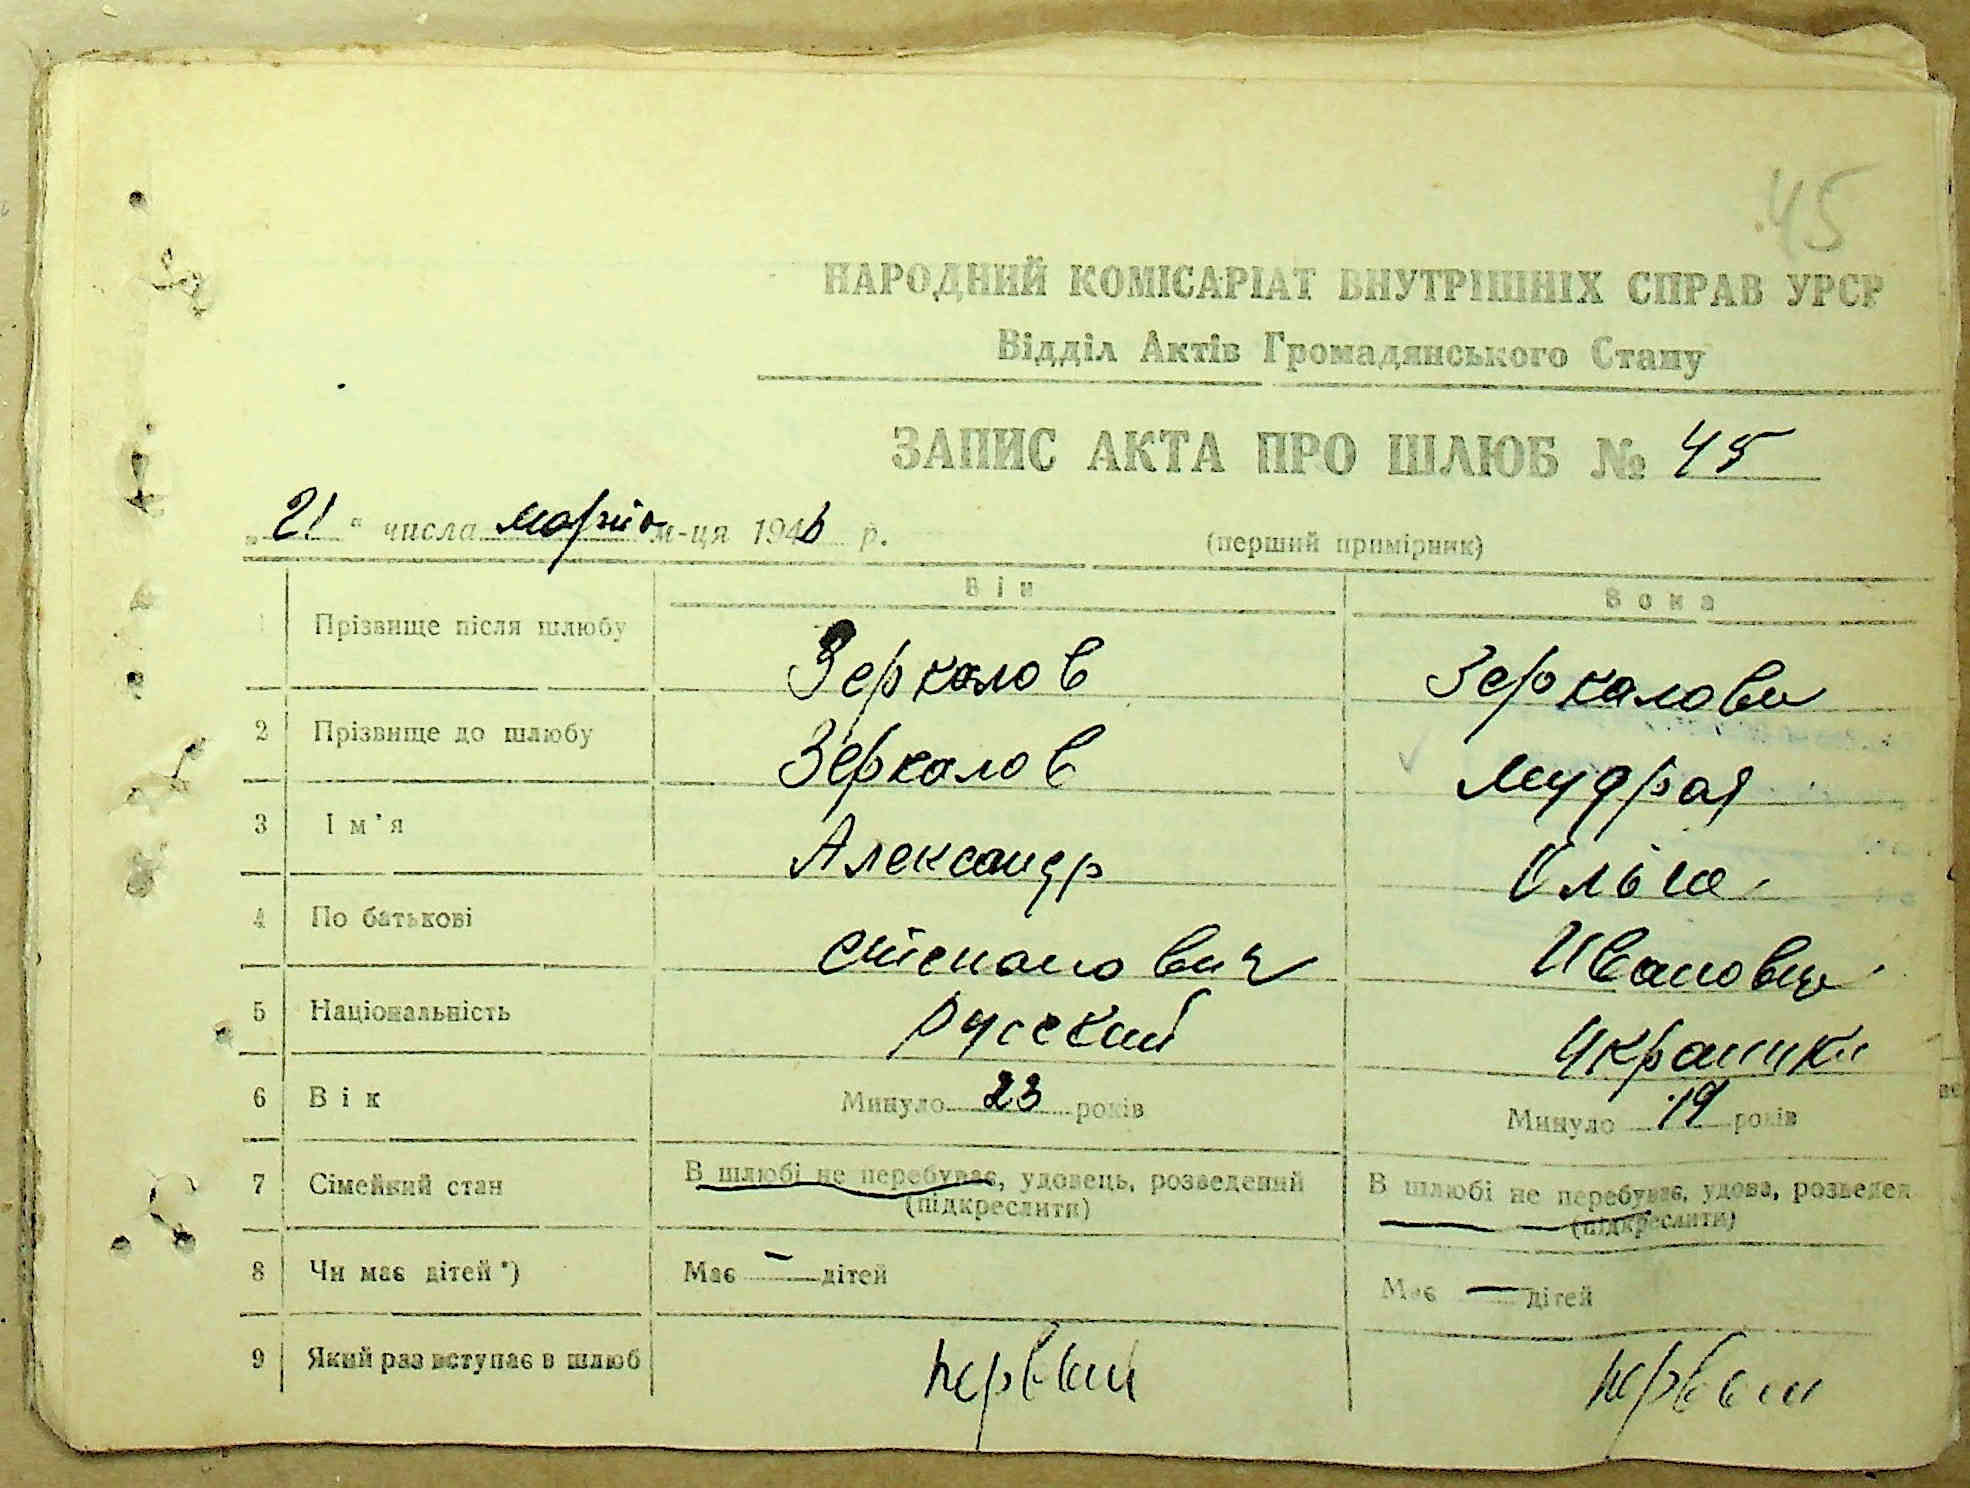 45
НАРОДНИЙ КОМІСАРІАТ ВНУТРІШНІХ СПРАВ УРСР
Відділ Актів Громадянського Стану
ЗАПИС АКТА ПРО ШЛЮБ № 45
„21“ числа марта м-ця 1946 р.
(перший примірник)
Він Вона
1 Прізвище після шлюбу Зеркалов Зеркалова
2 Прізвище до шлюбу Зеркалов Мудрая
3 Ім'я Александр Ольга
4 По батькові Степанович Ивановна
5 Національність Русский Украинка
6 Вік Минуло 23 років Минуло 19 років
7 Сімейний стан В шлюбі не перебуває, удовець, розведений В шлюбі не перебуває, удова, розведен
(підкреслити) (підкреслити)
8 Чи має дітей*) Має — дітей Має — дітей
9 Який раз вступає в шлюб первый первый